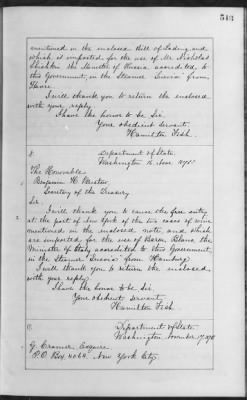 513
mentioned in the enclosed Bill of Lading, and
which is imported for the use of Mr. Nicholas
Shishkin the Minister of Russia accredited to
this Government, in the Steamer from
Havre.
I will thank you to return the enclosed
with your reply.
I have the honor to be Sir,
Your obedient servant,
Hamilton Fish.
Department of State,
Washington, 16 Nov 1875
The Honorable
Benjamin H. Bristow,
Secretary of the Treasury
Sir,
I will thank you to cause the free entry
at the port of New York of the two cases of wine
mentioned in the enclosed note, and which
are imported, for the use of Baron Blanc, the
Minister of Italy accredited to this Government,
in the Steamer from Hamburg.
I will thank you to return the enclosed,
with your reply.
I have the honor to be Sir,
Your obedient Servant,
Hamilton Fish
Department of State,
Washington, November 17, 1875
G. Cramer, Esquire
P.O. Box, 4064, New York City.